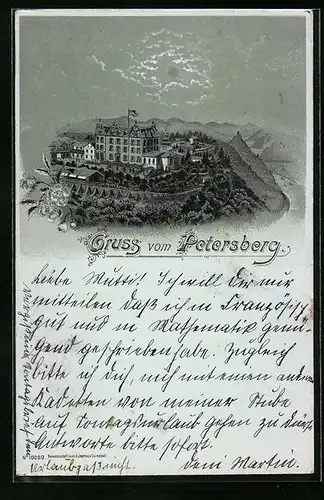 Gruss vom Petersberg.
Liebe Mutti! Ich will Dir nur
mitteilen daß ich in Französisch
gut und in Mathematik genü-
gend geschrieben habe. Zugleich
bitte ich dich, mich mit einem andern
Kadetten von meiner Stube
auf Sonntagsurlaub gehen zu
Antworte bitte sofort.
Dein Martin.
10003